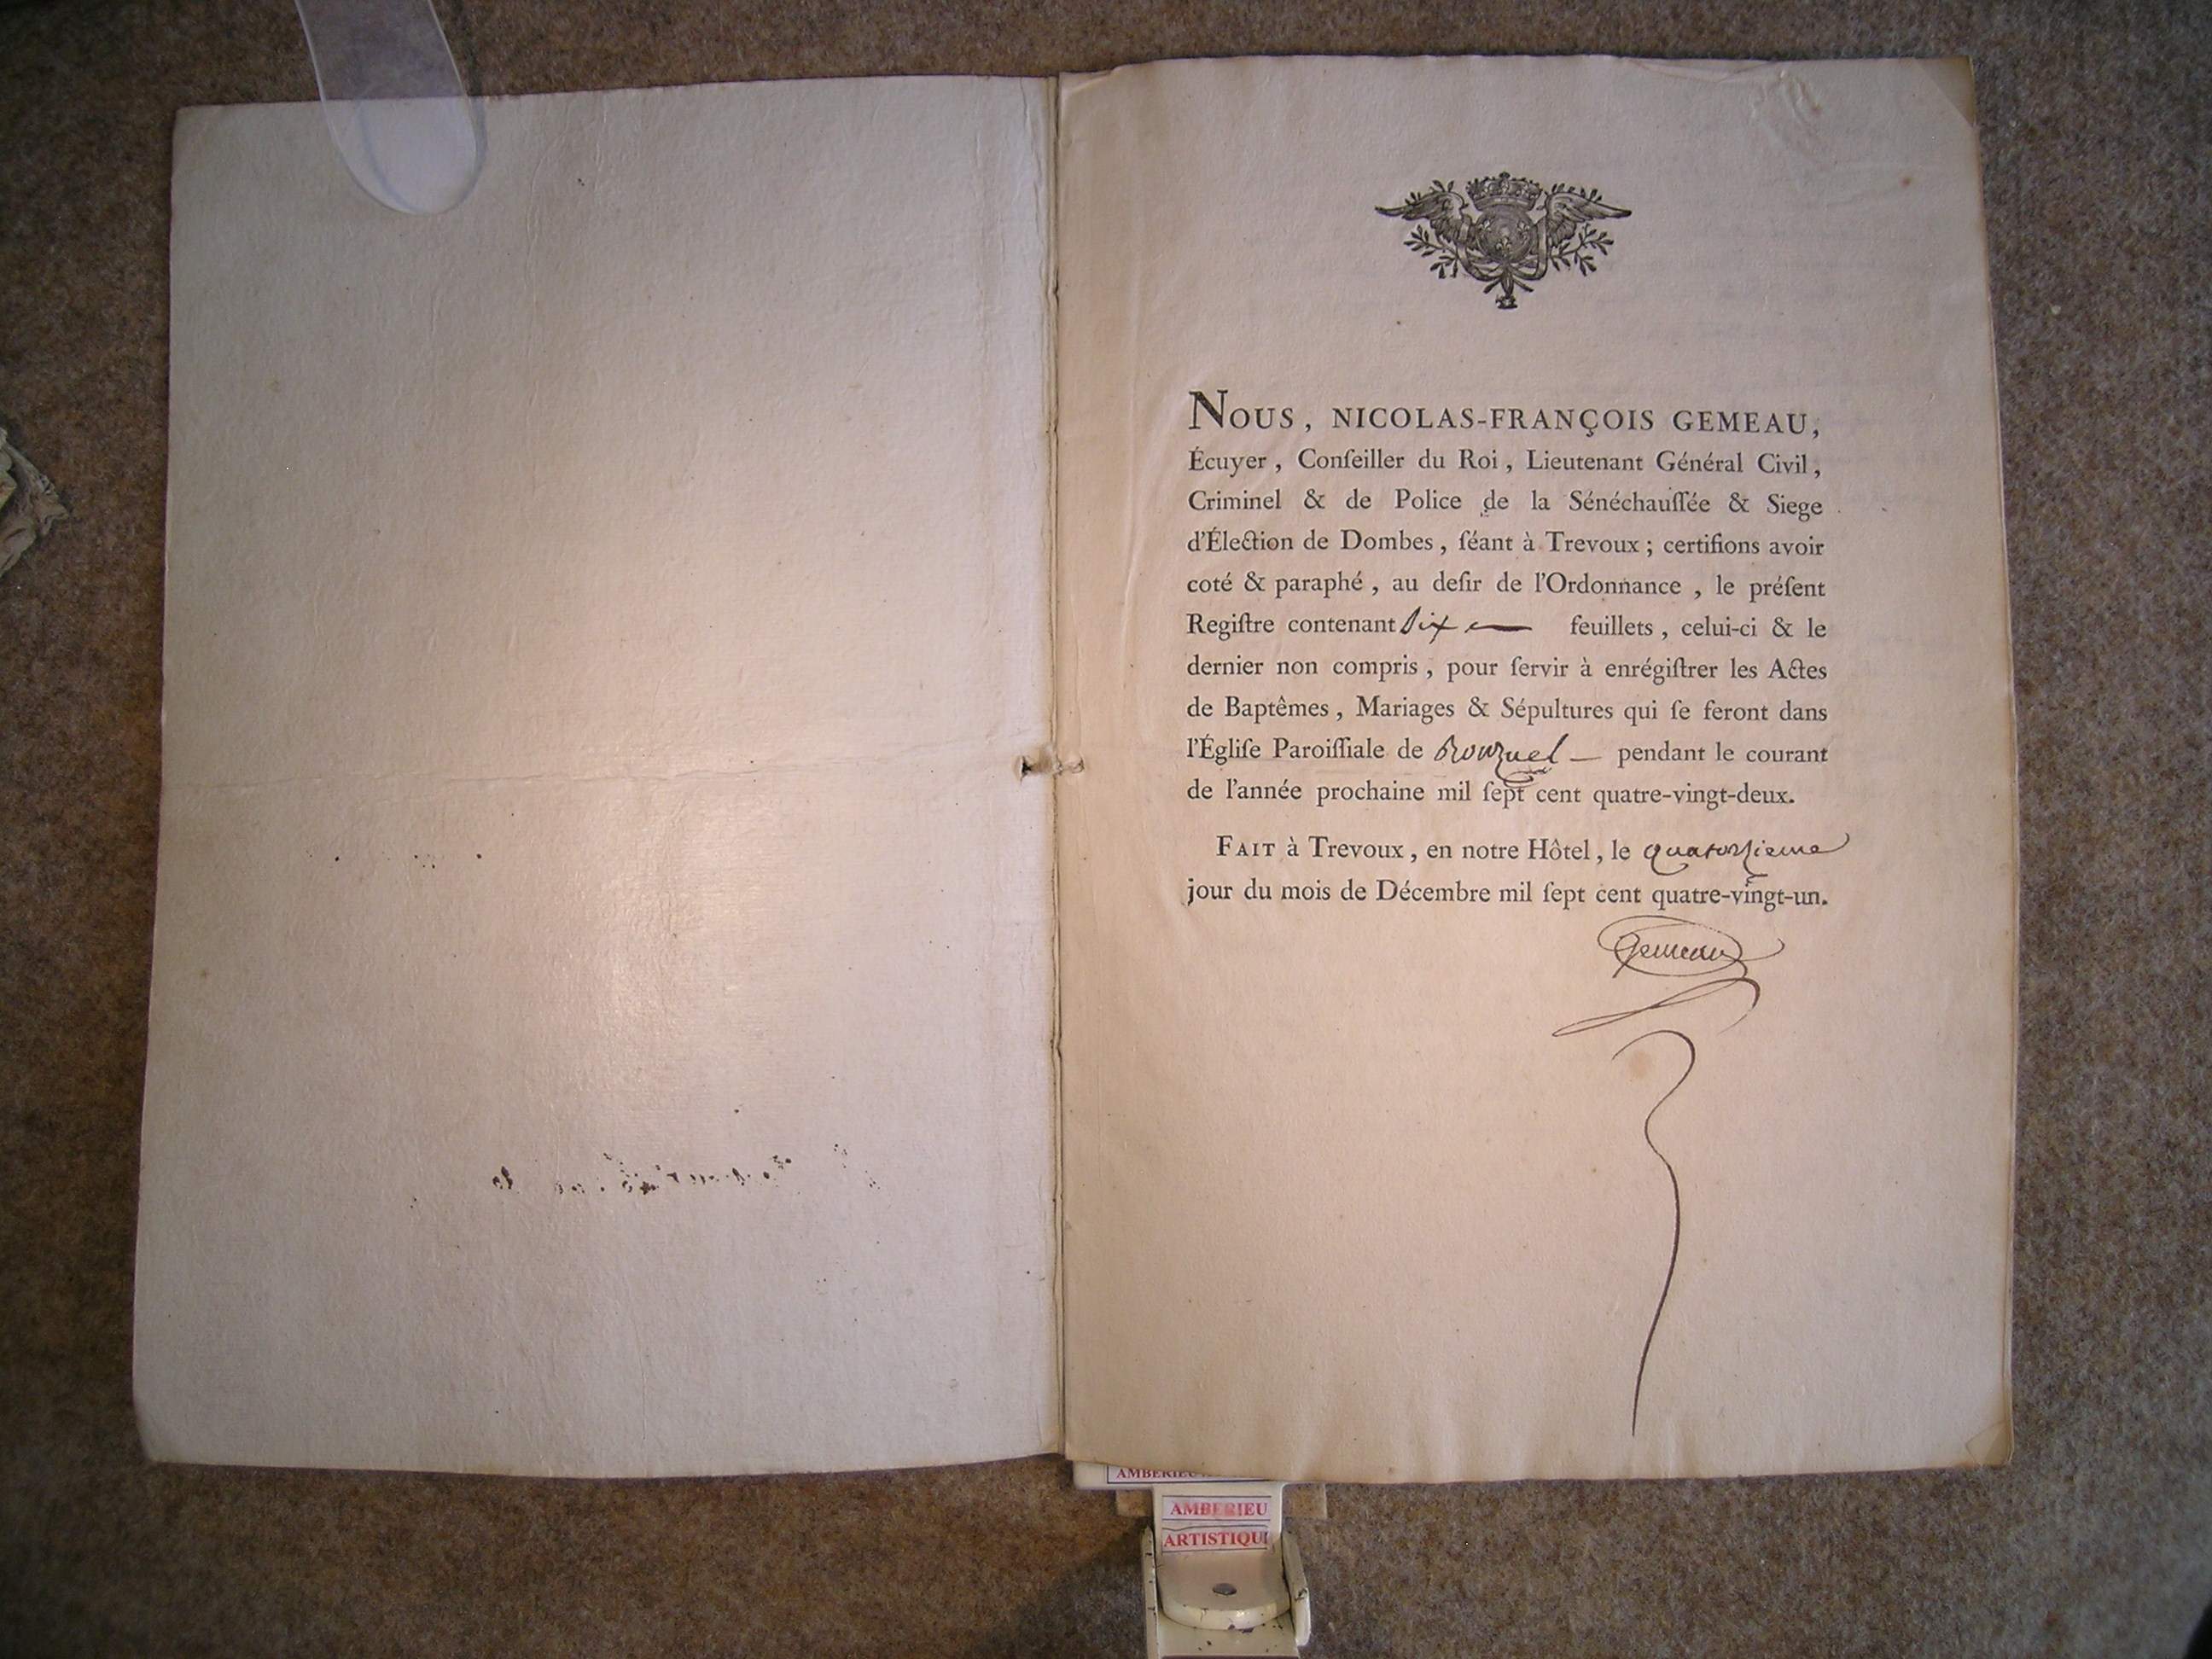 Nous, NICOLAS-FRANÇOIS GEMEAU,
Écuyer, Conſeiller du Roi, Lieutenant Général Civil,
Criminel & de Police de la Sénéchauſſée & Siege
d'Élection de Dombes, ſéant à Trevoux; certifions avoir
coté & paraphé, au deſir de l'Ordonnance, le préſent
Regiſtre contenant Six feuillets, celui-ci & le
dernier non compris, pour ſervir à enrégiſtrer les Actes
de Baptêmes, Mariages & Sépultures qui ſe feront dans
l'Égliſe Paroiſſiale de pendant le courant
de l'année prochaine mil ſept cent quatre-vingt-deux.
FAIT à Trevoux, en notre Hôtel, le quatorzieme
jour du mois de Décembre mil ſept cent quatre-vingt-un.
Gemeau
AMBERIEU
AMBERIEU
ARTISTIQU